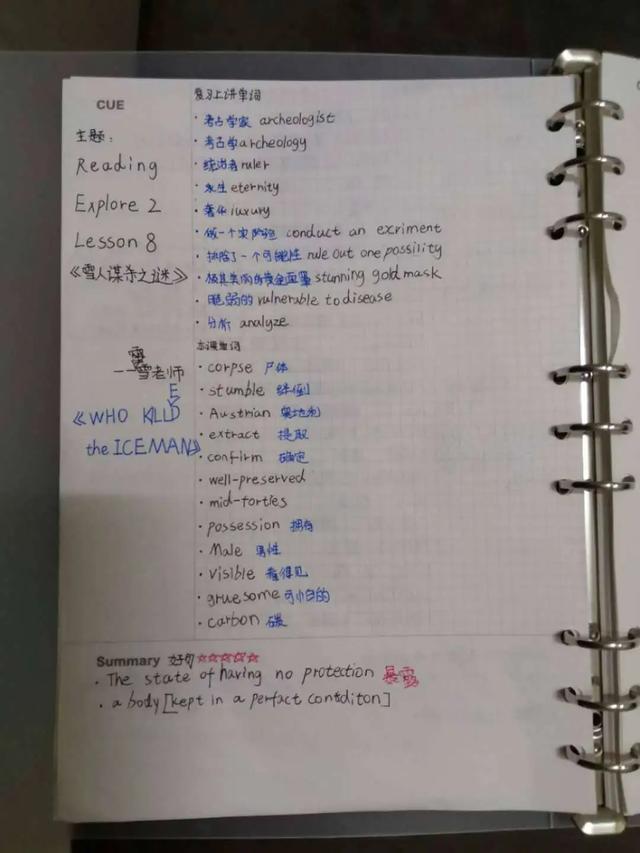 CUE
主题:
Reading
Explore 2
Lesson 8
《雪人谋杀之谜》
——雪老师
露
《WHO KILLD
E
the ICEMAN》
复习上讲单词
· 考古学家 archeologist
· 考古学 archeology
· 统治者 ruler
· 永生 eternity
· 奢华 luxury
· 做一个实验 conduct an excriment
· 排除了一个可能性 rule out one possility
· 极其美丽的黄金面罩 stunning gold mask
· 脆弱的 vulnerable to disease
· 分析 analyze
本课单词
· corpse 尸体
· stumble 绊倒
· Austrian 奥地利
· extract 提取
· confirm 确定
· well-preserved
· mid-forties
· possession 拥有
· Male 男性
· visible 看得见
· gruesome 可怕的
· carbon 碳
Summary 好句☆☆☆☆☆
· The state of having no protection 暴露
· a body [kept in a perfact contditon]